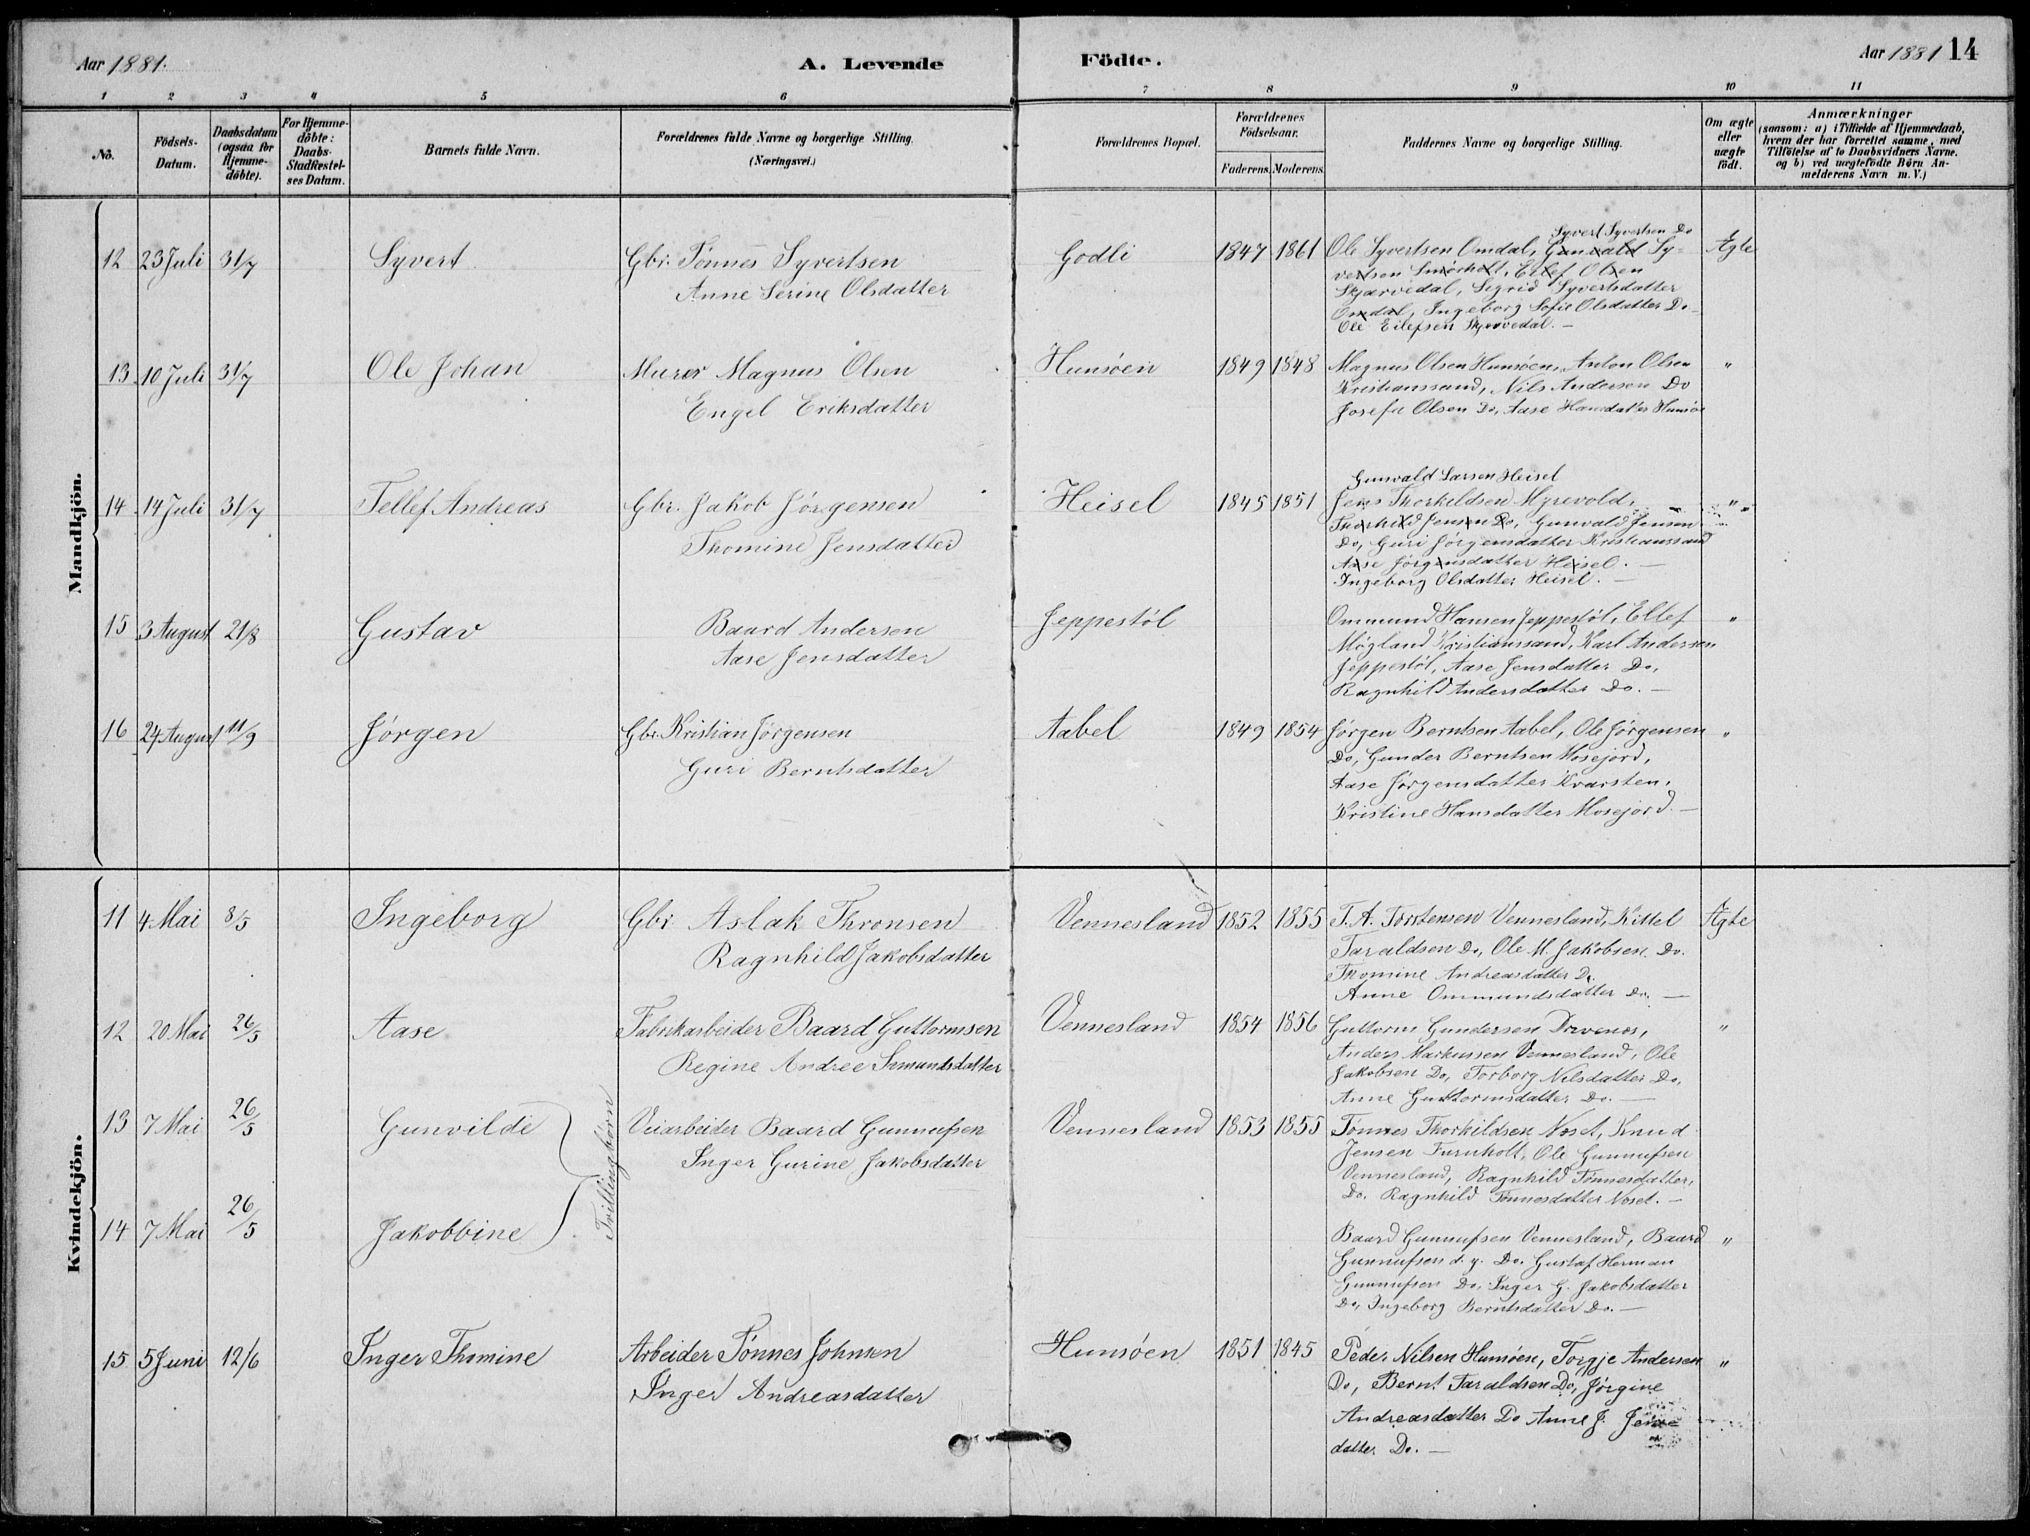 Aar 1881.
A. Levende
Födte.
Aar 1881
14
1 2 3 4 5 6 7 8 9 10 11
No.
Födsels-
Datum.
Daabsdatum
(ogsaa for
Hjemme-
döbte).
For Hjemme-
döbte:
Daabs-
Stadfæstel-
ses Datum.
Barnets fulde Navn.
Forældrenes fulde Navne og borgerlige Stilling.
(Næringsvei.)
Forældrenes Bopæl.
Forældrenes
Födselsaar.
Faderens. Moderens.
Faddernes Navne og borgerlige Stilling.
Om ægte
eller
uægte
födt.
Anmærkninger
(saasom: a) i Tilfælde af Hjemmedaab,
hvem der har forrettet samme, med
Tilföielse af to Daabsvidners Navne,
og b) ved uægtefödte Börn An-
melderens Navn m. V.)
Mandkjön.
12 23 Juli 31/7 Syvert
Gbr. Tönnes Syvertsen
Anne Serine Olsdatter
Godli 1847 1861
Syvert Syvertsen Do
Ole Syvertsen Omdal, Gunvald Sy-
vertsen Smørholt, Eilef Olsen
Skjærvedal, Sigrid Syvertsdatter
Omdal, Ingeborg Sofie Olsdatter Do
Ole Eilefsen Skjervedal. –
Ægte
13 10 Juli 31/7 Ole Johan
Murer Magnus Olsen
Engel Eriksdatter
Hunsøen 1849 1848
Magnus Olsen Hunsøen, Anton Olsen
Kristianssand, Nils Andersen Do
Josefa Olsen Do, Aase Hansdatter Hunsøe
"
14 14 Juli 31/7 Tellef Andreas
Gbr. Jakob Jørgensen
Thomine Jensdatter
Heisel 1845 1851
Gunvald Larsen Heisel
Jens Thorkildsen Myrevold,
Thorkild Jensen Do, Gunvald Jensen
Do, Guri Jørgensdatter Kristianssand
Aase Jørgensdatter Heisel. –
Ingeborg Olsdatter Heisel. –
"
15 3 August 21/8 Gustav
Baard Andersen
Aase Jensdatter
Jeppestøl
Ommund Hansen Jeppestøl, Ellef
Møgland Kristianssand, Karl Andersen
Jeppestøl, Aase Jensdatter Do,
Ragnhild Andersdatter Do. –
"
16 24 August 11/9 Jørgen
Gbr. Kristian Jørgensen
Guri Berntsdatter
Aabel 1849 1854
Jørgen Berntsen Aabel, Ole Jørgensen
Do, Gunder Berntsen Mosejord,
Aase Jørgensdatter Kvarsten,
Kristine Hansdatter Mosejord –
"
Kvindekjön.
11 4 Mai 8/5 Ingeborg
Gbr Aslak Thronsen
Ragnhild Jakobsdatter
Vennesland 1852 1855
T. A. Torstensen Vennesland, Kittel
Taraldsen Do, Ole M. Jakobsen Do.
Thomine Andreasdatter Do.
Anne Ommundsdatter Do. –
Ægte
12 20 Mai 26/5 Aase
Fabrikarbeider Baard Guttormsen
Regine Andree Semundsdatter
Vennesland 1854 1856
Guttorm Gundersen Drivenes,
Anders Markussen Vennesland, Ole
Jakobsen Do, Torborg Nilsdatter Do,
Anne Guttormsdatter Do. –
"
13 7 Mai 26/5 Gunvilde
Tvillingbørn
Veiarbeider Baard Gunnufsen
Inger Gurine Jakobsdatter
Vennesland 1853 1855
Tønnes Thorkildsen Noset, Knud
Jensen Furuholt, Ole Gunnufsen
Vennesland, Ragnhild Tønnesdatter,
Do. Ragnhild Tønnesdatter Noset. –
14 7 Mai 26/5 Jakobbine
Baard Gunnufsen Vennesland, Baard
Gunnufsen d. y. Do. Gustaf Herman
Gunnufsen Do, Inger G. Jakobsdatter
Do, Ingeborg Berntsdatter Do. –
"
15 5 Juni 12/6 Inger Thomine
Arbeider Tønnes Johnsen
Inger Andreasdatter
Hunsøen 1851 1845
Peder Nilsen Hunsøen, Torgje Andersen
Do, Bernt Taraldsen Do, Jørgine
Andreasdatter Do Anne J. Jens
datter Do. –
"